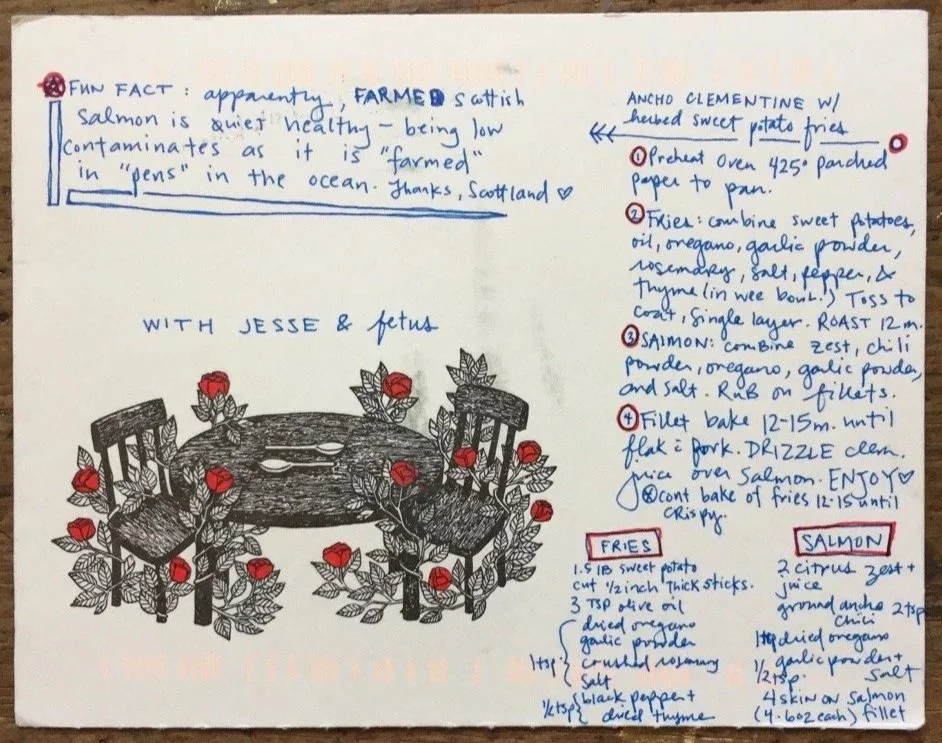 FUN FACT: apparently, FARMED scottish
Salmon is quiet healthy - being low
contaminates as it is "farmed"
in "pens" in the ocean. Thanks, Scottland ♡
WITH JESSE & fetus
ANCHO CLEMENTINE W/
herbed sweet potato fries
① Preheat oven 425° parched
paper to pan.
② Fries: combine sweet potatoes,
oil, oregano, garlic powder,
rosemary, salt, pepper, &
thyme (in wee bowl.) Toss to
coat, single layer. ROAST 12 m.
③ SALMON: combine zest, chili
powder, oregano, garlic powder,
and salt. RUB on fillets.
④ Fillet bake 12-15m. until
flak c̄ fork. DRIZZLE clem.
juice over Salmon. ENJOY ♡
cont bake of fries 12-15 until
crispy.
FRIES
1.5 lB sweet potato
cut ½ inch thick sticks.
3 TSP olive oil
1tsp { dried oregano
garlic powder
crushed rosemary
salt
½ tsp { black pepper +
dried thyme
SALMON
2 citrus zest +
juice
ground ancho 2 tsp
chili
1 tsp dried oregano
1/2 tsp. garlic powder +
salt
4 skin on salmon
(4-6oz each) fillet